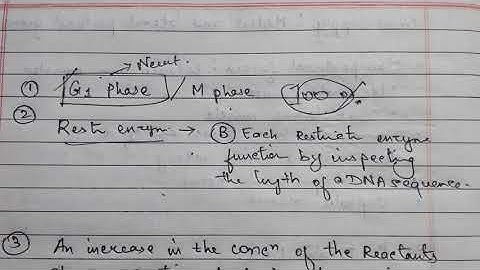 → Neut.
① G1 Phase / M phase 100
②
Restn enzym → Ⓑ Each Restricth enzyme
function by inspecting
the length of a DNA sequence.
③ An increase in the concⁿ of the Reactants